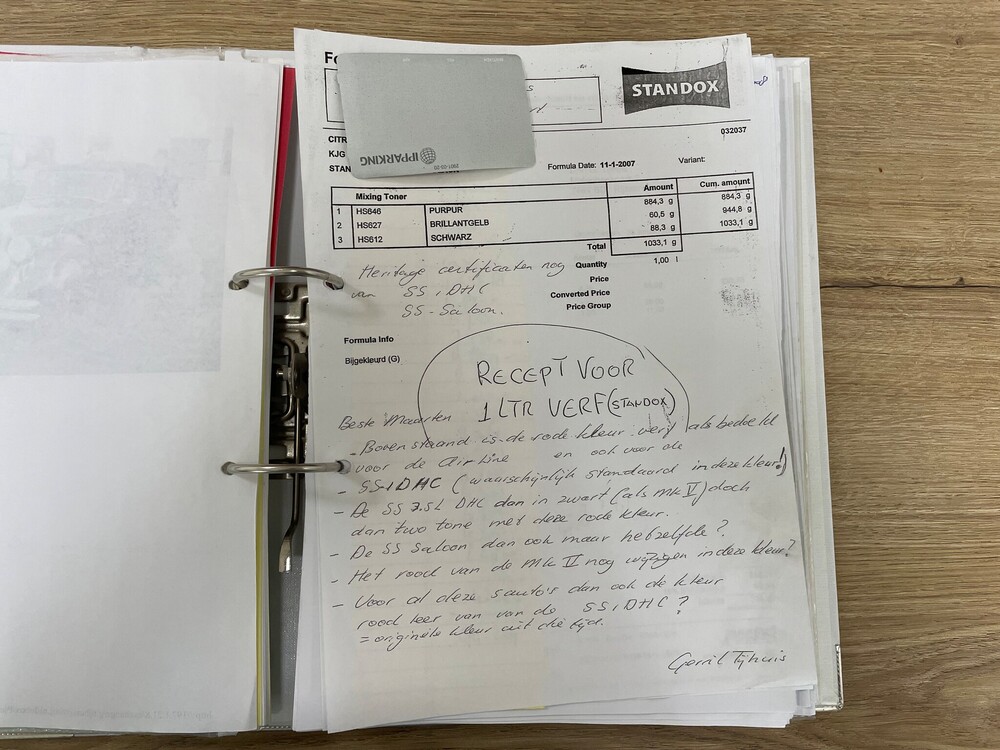 STANDOX
IPPARKING
032037
CITR
KJG
STAN
Formula Date: 11-1-2007 Variant:
Mixing Toner Amount Cum. amount
1 HS646 PURPUR 884,3 g 884,3 g
2 HS627 BRILLANTGELB 60,5 g 944,8 g
3 HS612 SCHWARZ 88,3 g 1033,1 g
Total 1033,1 g
Quantity 1,00 l
Price
Converted Price
Price Group
Heritage certificaten nog
van SS1DHC
SS-Saloon.
Formula Info
Bijgekleurd (G)
RECEPT VOOR
1 LTR VERF (STANDOX)
Beste Maarten
- Bovenstaand is de rode kleur verf als bedoeld
voor de Airline en ook voor de
- SS1DHC (waarschijnlijk standaard in deze kleur!)
- De SS 3.5L DHC dan in zwart (als MK V) doch
dan two tone met deze rode kleur.
- De SS Saloon dan ook maar hetzelfde?
- Het rood van de MK V nog wijzigen in deze kleur?
- Voor al deze 5 auto's dan ook de kleur
rood leer van van de SS1DHC?
= originele kleur uit die tijd.
Gerrit Tijhuis